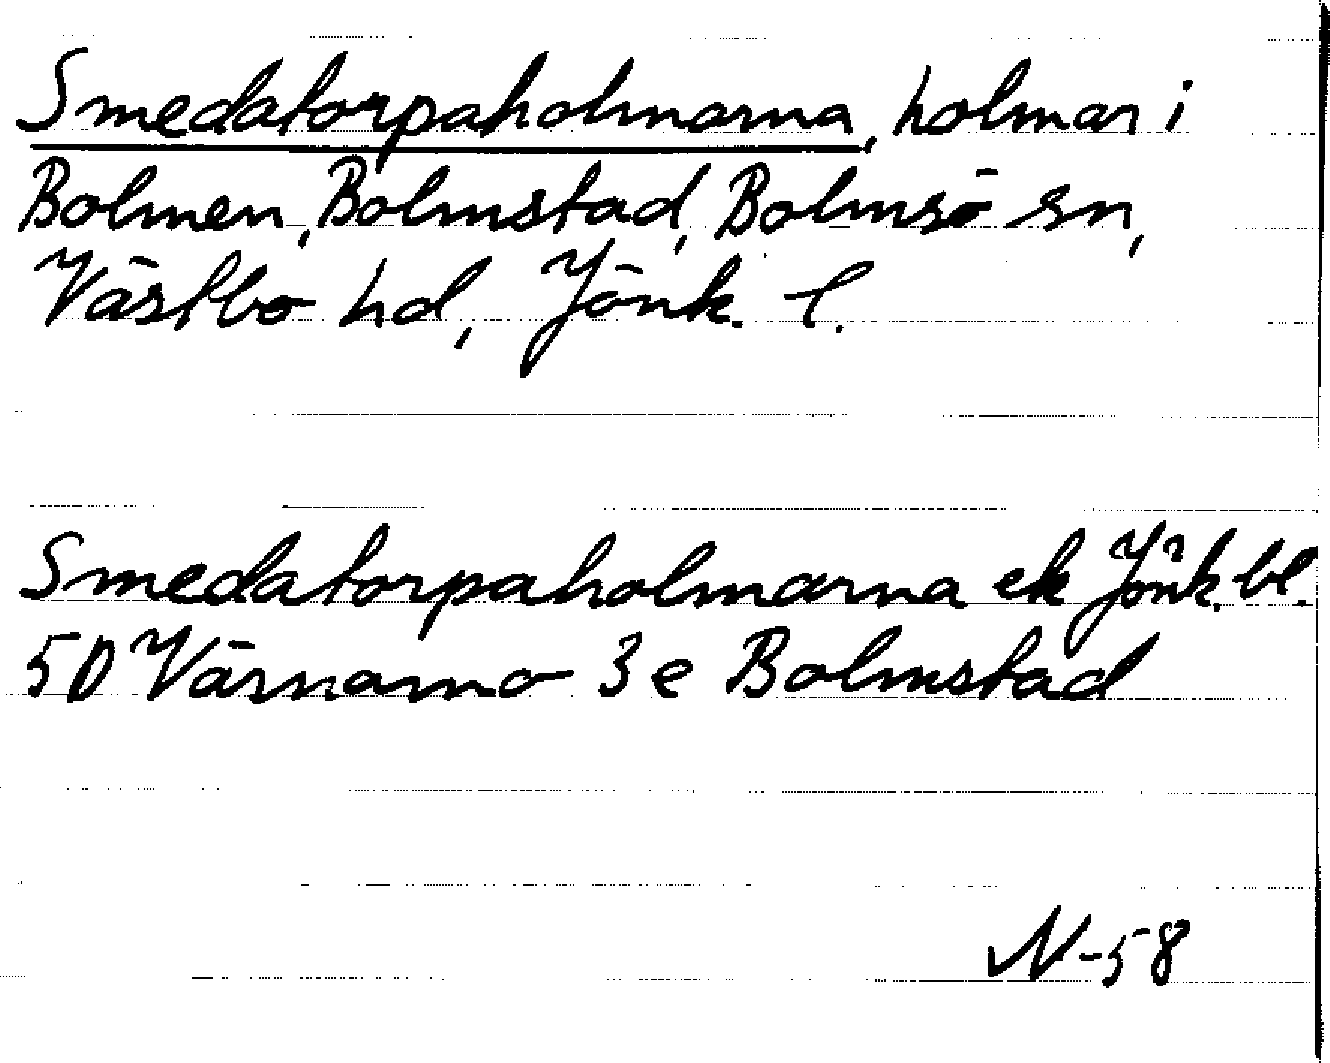 Smedatorpaholmarna, holmar i
Bolmen, Bolmstad, Bolmsö sn,
Västbo hd, Jönk. l.
Smedatorpaholmarna ek Jönk. bl.
50 Värnamo 3e Bolmstad
N-58